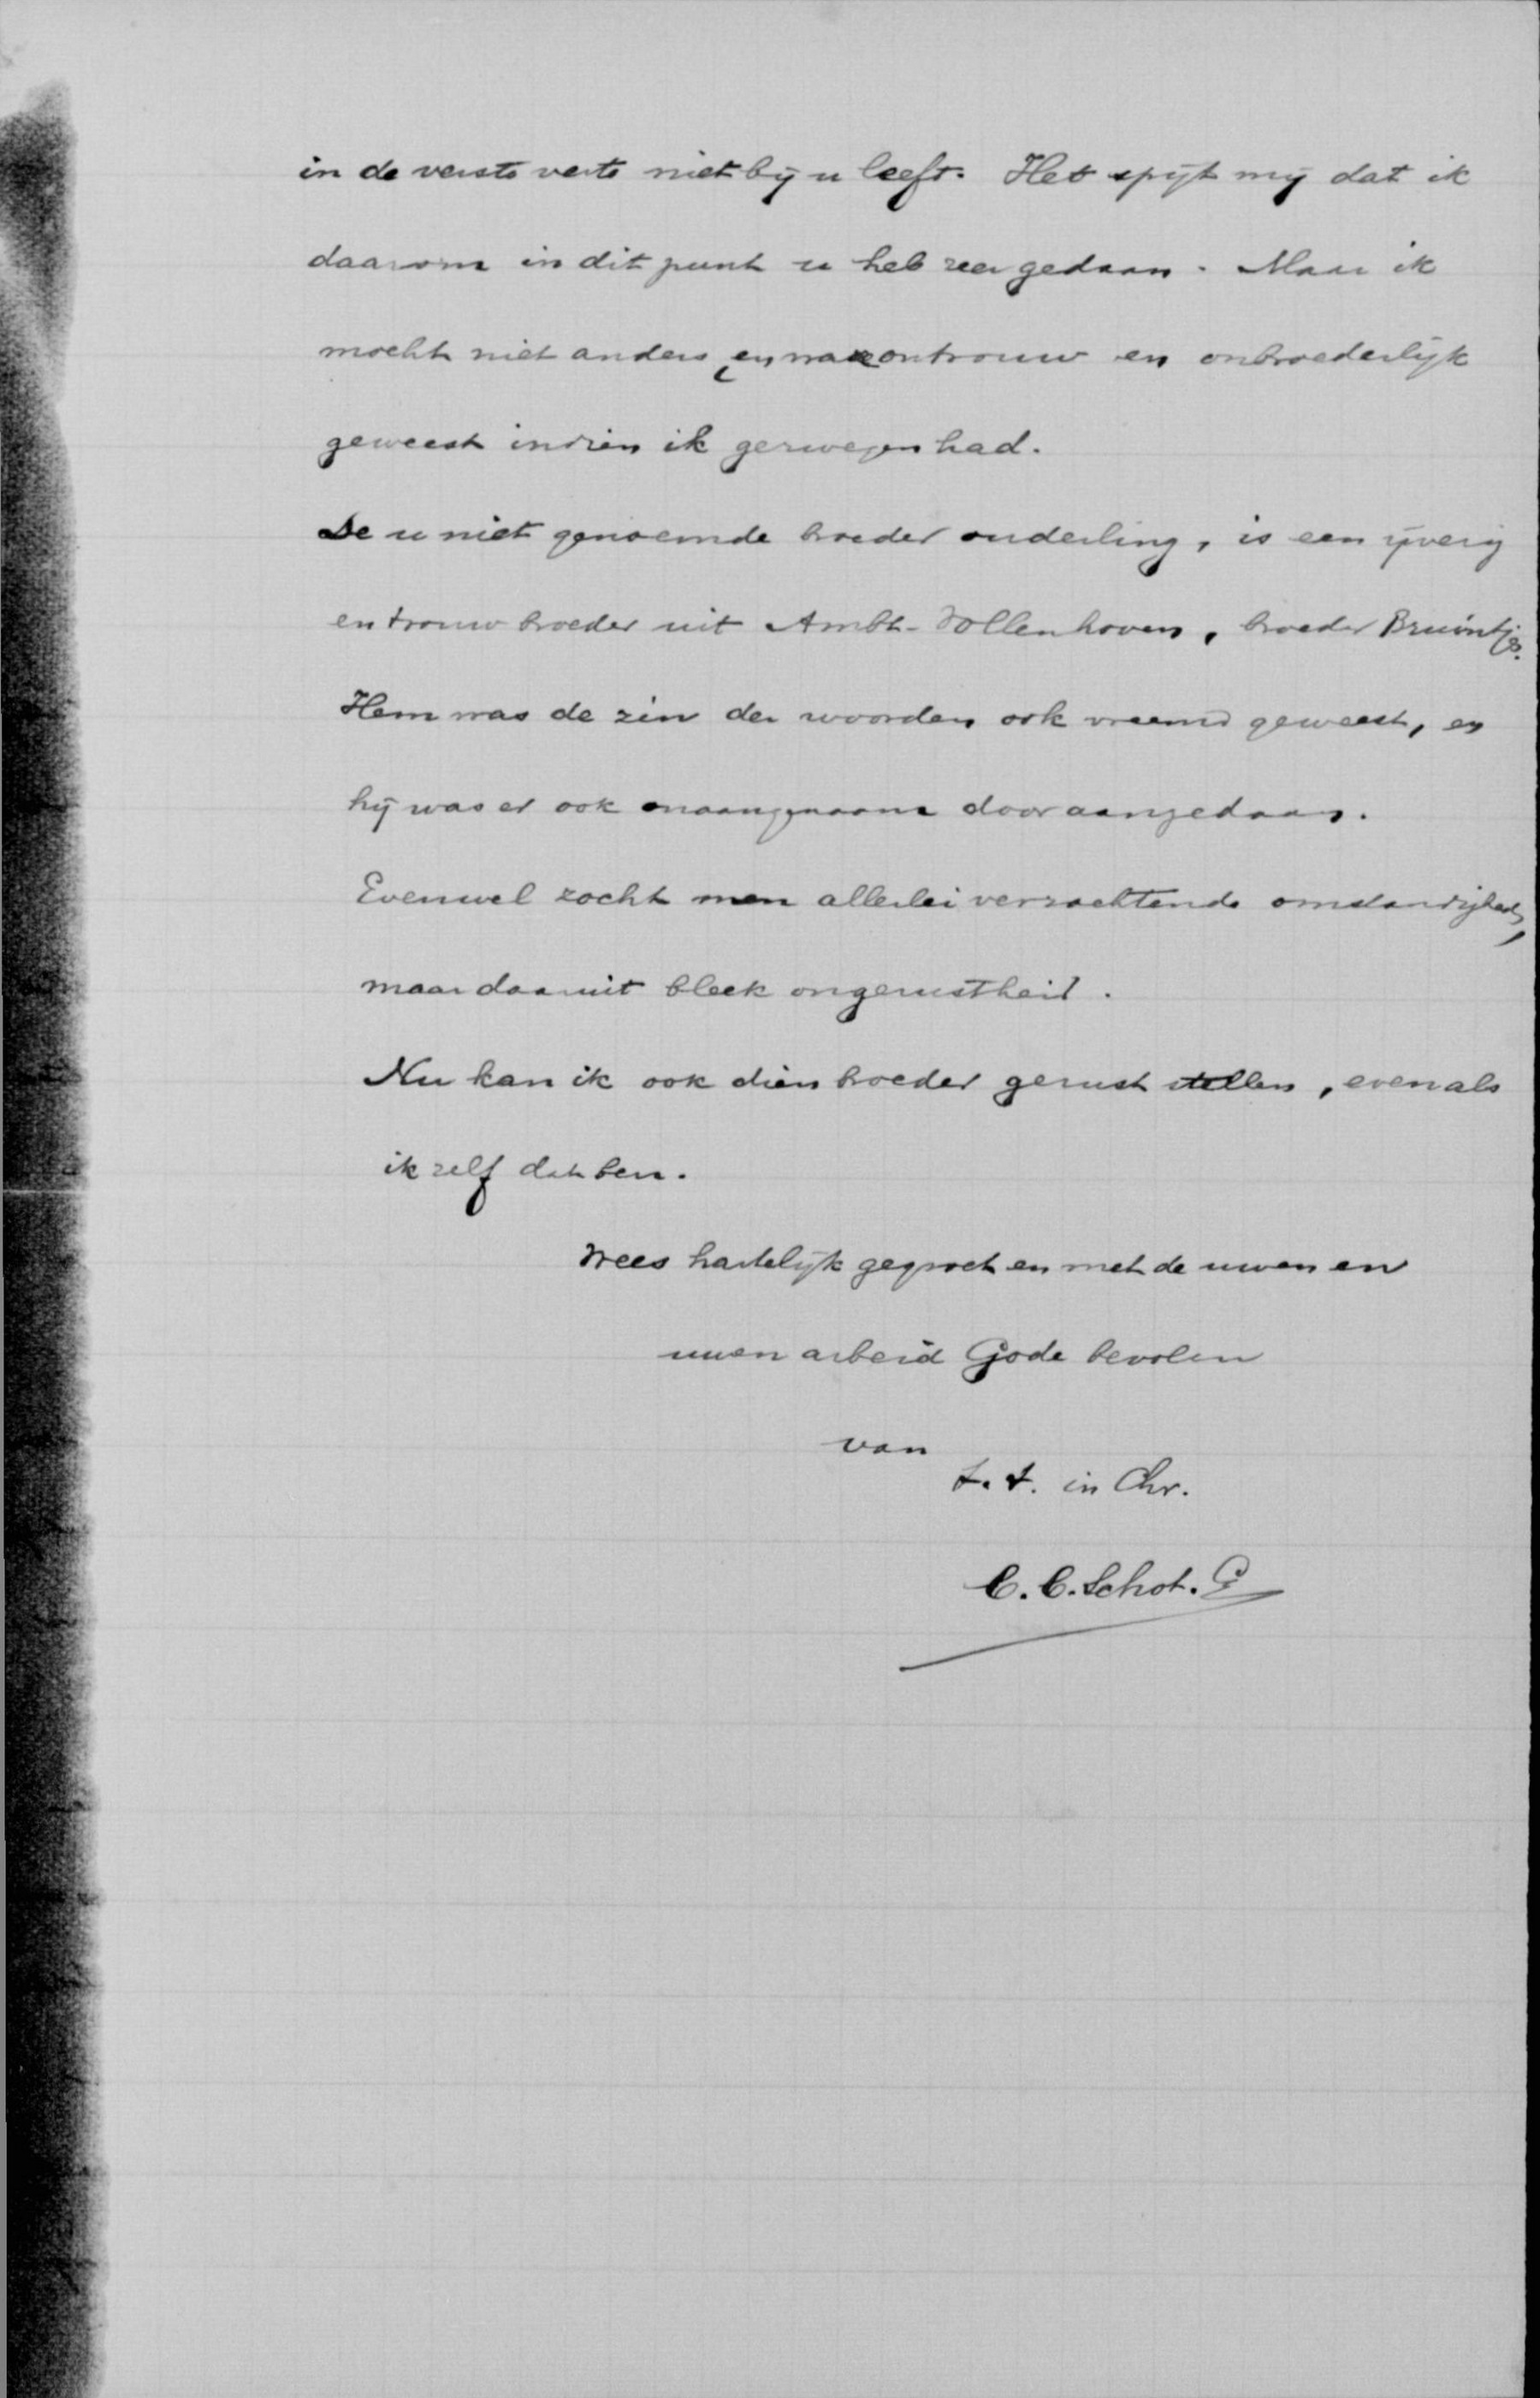 in de verste verte niet bij u leeft. Het spijt mij dat ik
daarom in dit punt u heb zeer gedaan. Maar ik
mocht niet anders, en ware ontrouw en onbroederlijk
geweest indien ik gezwegen had.
De u niet genoemde broeder ouderling, is een ijverig
en trouw broeder uit Ambt-Vollenhoven, broeder Bruintjes.
Hem was de zin der woorden ook vreemd geweest, en
hij was er ook onaangenaam door aangedaan.
Evenwel zocht men allerlei verzachtende omstandigheden,
maar daaruit bleek ongerustheid.
Nu kan ik ook dien broeder gerust stellen, evenals
ik zelf dat ben.
Wees hartelijk gegroet en met de uwen en
uwen arbeid Gode bevolen
van
t.t. in Chr.
C. C. Schot. G